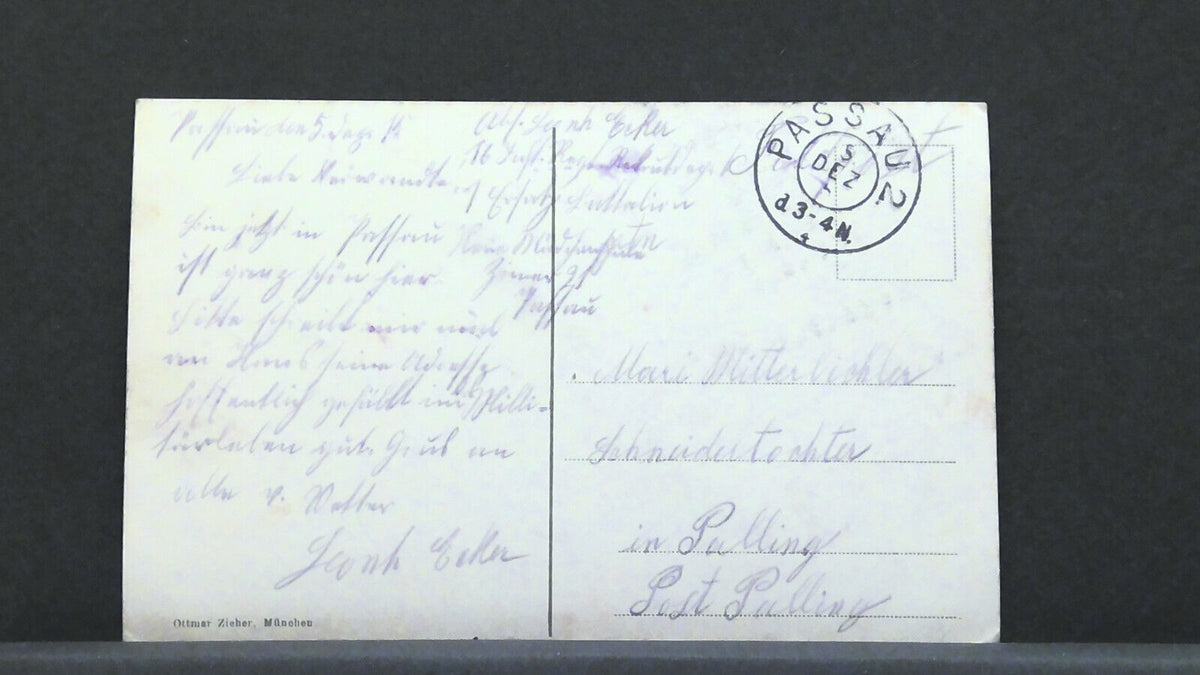 Passau den 5. Dez.
Liebe Verwandte
Bin jetzt in Passau
ist ganz schön hier.
Bitte schreibt mir
an Hans seine Adresse
hoffentlich gefällt im Milli-
tärleben gut. Gruß an
alle v. Vetter
Leonh Ecker
Abs. Leonh Ecker
16 Inft. Reg. Rekrutdep.
Ersatz Battalion
Mädchenschule
Passau
PASSAU 2
5
DEZ
3-4 N.
Mari Mitterbichler
Schneidertochter
in Palling
Post Palling
Ottmar Zieher, München